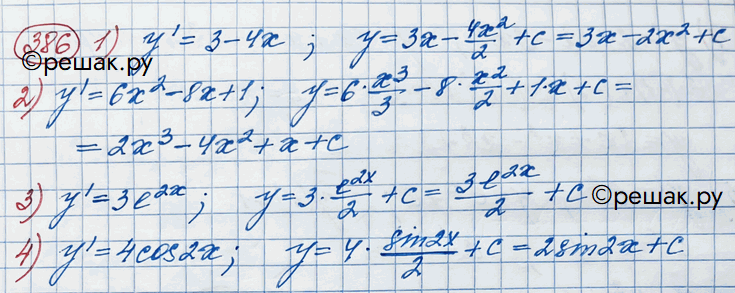 386 1) y' = 3 - 4x ; y = 3x - 4x²/2 + c = 3x - 2x² + c
©решак.ру
2) y' = 6x² - 8x + 1; y = 6 · x³/3 - 8 · x²/2 + 1 · x + c =
= 2x³ - 4x² + x + c
3) y' = 3e^(2x) ; y = 3 · e^(2x)/2 + c = 3e^(2x)/2 + c
©решак.ру
4) y' = 4cos2x ; y = 4 · sin2x/2 + c = 2sin2x + c